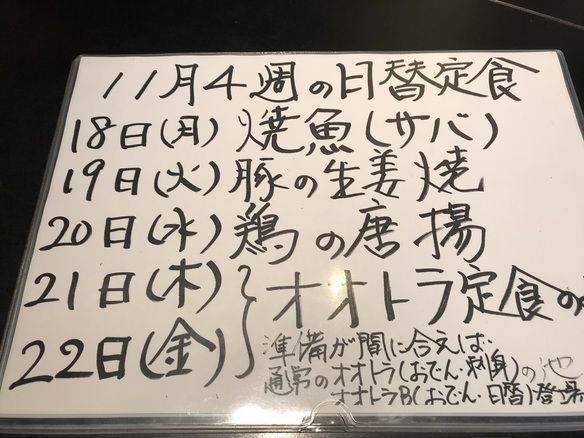 11月4週の日替定食
18日(月)焼魚(サバ)
19日(火)豚の生姜焼
20日(水)鶏の唐揚
21日(木)
22日(金)
オオトラ定食の
準備が間に合えば、
通常のオオトラ(おでん・刺身)の他
オオトラB(おでん・日替)登場